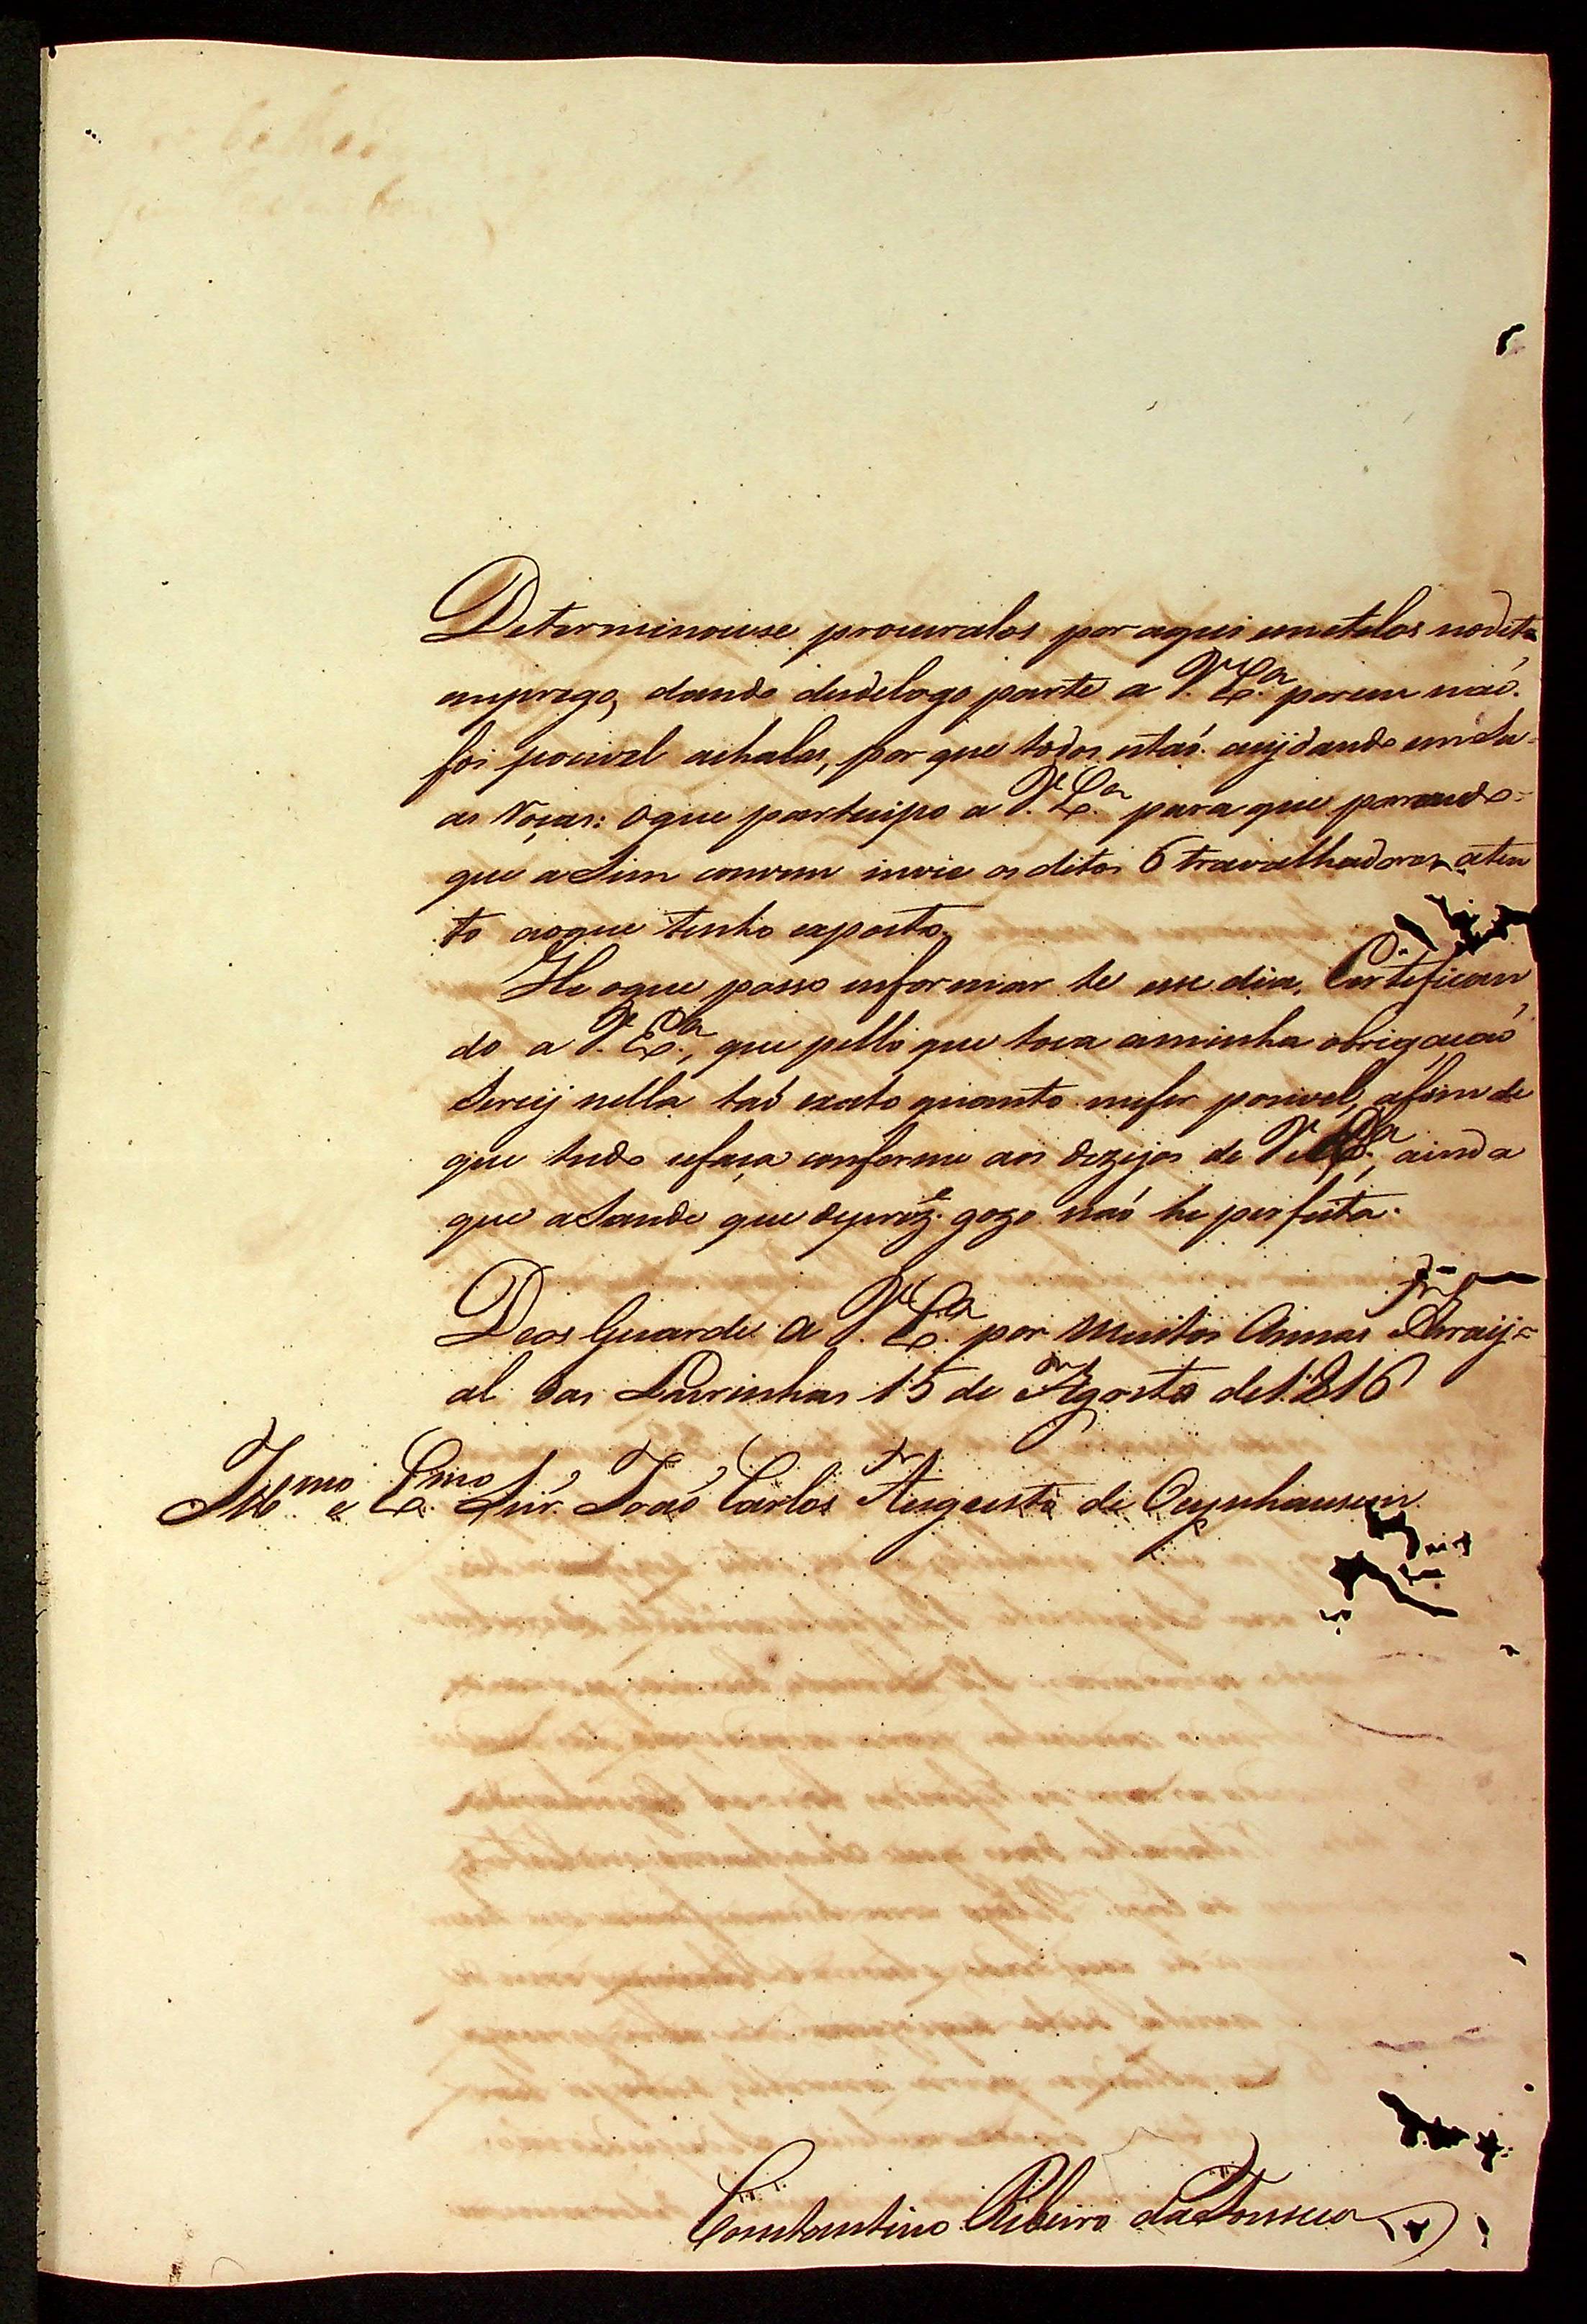 Determineuse procuralos por aqui emetelos nodito
emprego, dando desdelogo parte a V. Ex.ª porem naõ
foi pocivel achalos, por que todos estaõ cuijdando em Su-
as Roças: Oque partecipo a V. Ex.ª para que parecendo-
que aSim convem invie os ditos 6 travalhadores aten
to aoque tenho exposto.
He oque posso enformar te esse dia. Certefican
do a V. Ex.ª, que pello que toca aminha obrigacaõ
Sereij nella taõ exato quanto mefor pocivel, afim de
que tudo sefaça conforme aos dezejos de V. Ex.ª, ainda
que aSaude que deprez.e gozo naõ he perfeita.
Deos Guarde a V. Ex.ª por muitos Annos Arraij-
al das Lavrinhas 15 de Agosto de 1816
Ill.mo e Ex.mo Snr. Joaõ Carlos Augusto de Oeynhausen
Constantino Ribeiro daFonseca